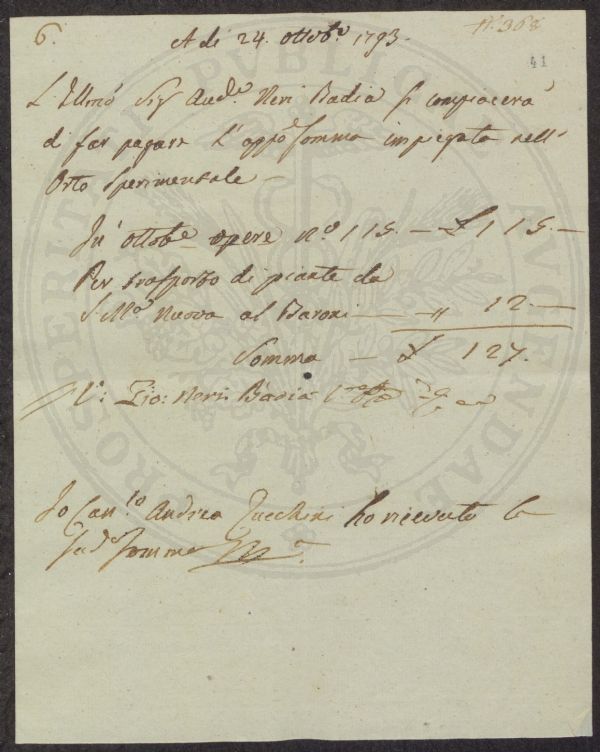 6.
N.° 368
A di 24. Ottob.e 1793.
41
L'Illmo Sig Aud.e Neri Badia si compiacerà
di far pagare l'appo Somma impiegata nell'
Orto Sperimentale —
In Ottobe opere n.° 115. — £ 115. —
Per trasporto di piante da
S. M.a Nuova al Baroni — " 12. —
Somma — £ 127.
V.: Gio: Neri Badia
Io Can.co Andrea Zucchini ho ricevuto la
sud.a somma
PROSPERITATI PUBLICAE AUGENDAE